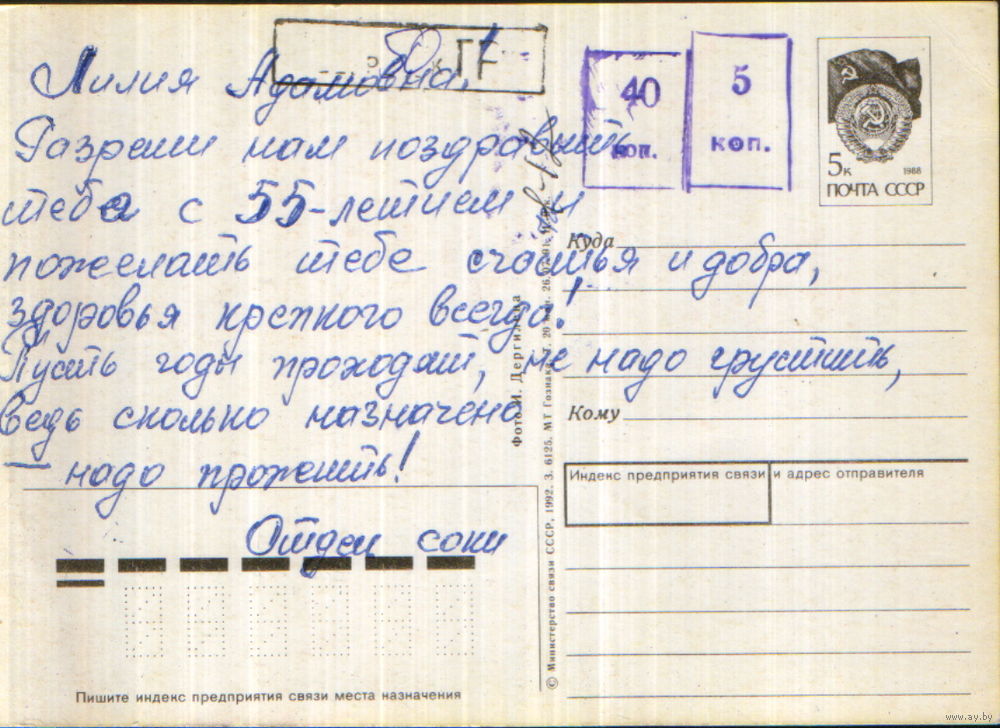 Лилия Адамовна!
Разреши нам поздравить
тебя с 55-летием и
пожелать тебе счастья и добра,
здоровья крепкого всегда!
Пусть годы проходят, не надо грустить,
ведь сколько назначено
— надо прожить!
Отдел
40
коп.
5
коп.
5к 1988
ПОЧТА СССР
Куда
Кому
Индекс предприятия связи и адрес отправителя
Фото И. Дергилева
© Министерство связи СССР, 1992. З. 6125. МТ Гознака.
Пишите индекс предприятия связи места назначения
www.ay.by